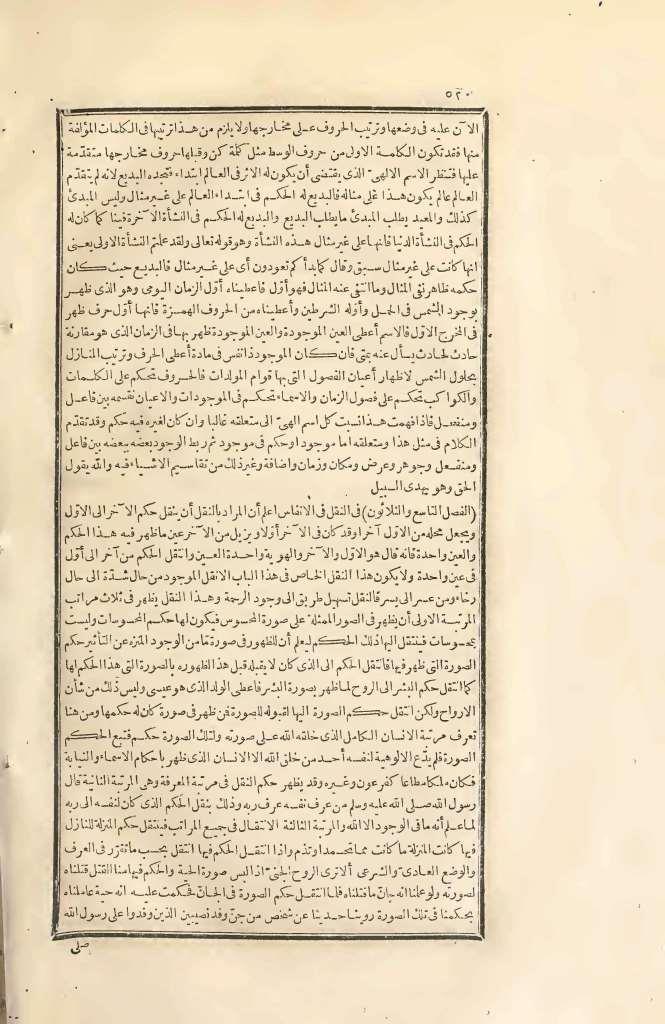 ٥٢٠
الآن عليه فى وضعها وترتيب الحروف على مخارجها ولا يلزم من هذا ترتيبها فى الكلمات المؤلفة
منها فقد تكون الكلمة الاولى من حروف الوسط مثل كلمة كن وقبلها حروف مخارجها متقدمة
عليها فتنظر الاسم الالهى الذى يقتضى أن يكون له الاثر فى العالم ابتداء فتجده البديع لانه لم يتقدم
العالم عالم يكون هذا على مثاله فالبديع له الحكم فى ابتداء العالم على غير مثال وليس المبدئ
كذلك والمعيد يطلب المبدئ ما يطلب البديع والبديع له الحكم فى النشأة الآخرة فينا كما كان له
الحكم فى النشأة الدنيا فانها على غير مثال هذه النشأة وهو قوله تعالى ولقد علمتم النشأة الاولى يعنى
انها كانت على غير مثال سبق وقال كما بدأكم تعودون أى على غير مثال فالبديع حيث كان
حكمه ظاهر نفى المثال وما انتفى عنه المثال فهو أوّل فاعطيناه أوّل الزمان اليومى وهو الذى ظهر
بوجود الشمس فى الحمل وأوّله الشرطين وأعطيناه من الحروف الهمزة فانها أوّل حرف ظهر
فى المخرج الاوّل فالاسم أعطى العين الموجودة والعين الموجودة ظهر بها فى الزمان الذى هو مقارنة
حادث لحادث يسأل عنه بمتى فان كان الموجود ذا نفس فى مادة أعطى الحرف وترتيب المنازل
بحلول الشمس لاظهار أعيان الفصول التى بها قوام المولدات فالحروف تحكم على الكلمات
والكواكب تحكم على فصول الزمان والاسماء تحكم فى الموجودات والاعيان نقسمه بين فاعل
ومنفعل فاذا فهمت هذا نسبت كل اسم الهىّ الى متعلقه غالبا وان كان لغيره فيه حكم وقد تقدم
الكلام فى مثل هذا ومتعلقه اما موجود أو حكم فى موجود ثم ربط الوجود بعضه ببعضه بين فاعل
ومنفعل وجوهر وعرض ومكان وزمان واضافة وغير ذلك من تقاسيم الاشياء فيه والله يقول
الحق وهو يهدى السبيل
(الفصل التاسع والثلاثون) فى النقل فى الانفاس اعلم أن المراد بالنقل أن ينقل حكم الآخر الى الاول
ويجعل محله من الاول آخرا وقد كان فى الآخر أولا ويزيل من الآخر عين ما ظهر فيه هذا الحكم
والعين واحدة فانه قال هو الاوّل والآخر والهوية واحدة العين وانتقل الحكم من آخر الى أوّل
فى عين واحدة ولا يكون هذا النقل الخاص فى هذا الباب الا نقل الموجود من حال شدّة الى حال
رخاء ومن عسر الى يسر فالنقل تسهيل طريق الى وجود الرحمة وهذا النقل يظهر فى ثلاث مراتب
المرتبة الاولى أن يظهر فى الصور الممثلة على صورة المحسوس فيكون لها حكم المحسوسات وليست
بمحسوسات فينتقل اليها ذلك الحكم ليعلم أن للظهور فى صورة تما من الوجود المنزه عن التأثير حكم
الصورة التى ظهر فيها فانتقل الحكم الى الذى كان لا يقبله قبل هذا الظهوره بالصورة التى هذا الحكم لها
كما انتقل حكم البشر الى الروح لما ظهر بصورة البشر فاعطى الولد الذى هو عيسى وليس ذلك من شأن
الارواح ولكن انتقل حكم الصورة اليها القبوله للصورة فمن ظهر فى صورة كان له حكمها ومن هنا
تعرف مرتبة الانسان الكامل الذى خلقه الله على صورته ولتلك الصورة حكم فتبع الحكم
الصورة فلم يدّع الالوهية لنفسه أحد من خلق الله الا الانسان الذى ظهر باحكام الاسماء والنيابة
فكان ملكا مطاعا كفرعون وغيره وقد يظهر حكم النقل فى مرتبة المعرفة وهى المرتبة الثانية قال
رسول الله صلى الله عليه وسلم من عرف نفسه عرف ربه وذلك بنقل الحكم الذى كان لنفسه الى ربه
لما علم أنه ما فى الوجود الا الله والمرتبة الثالثة الانتقال فى جميع المراتب فينتقل حكم المنزلة للنازل
فيها كانت المنزلة ما كانت مما تحمد أو تذم واذا انتقل الحكم فيها انتقل بحسب ما تقرّر فى العرف
والوضع العادىّ والشرعى ألا ترى الروح الجنىّ اذا لبس صورة الحية والحكم فيها منا القتل قتلناه
لصورته ولو علمنا انه جانّ ما قتلناه فلما انتقل حكم الصورة فى الجانّ فحكمت عليه انه حية عاملناه
بحكمنا فى تلك الصورة روينا حديثا عن شخص من جنّ وفد نصيبين الذين وفدوا على رسول الله
صلى